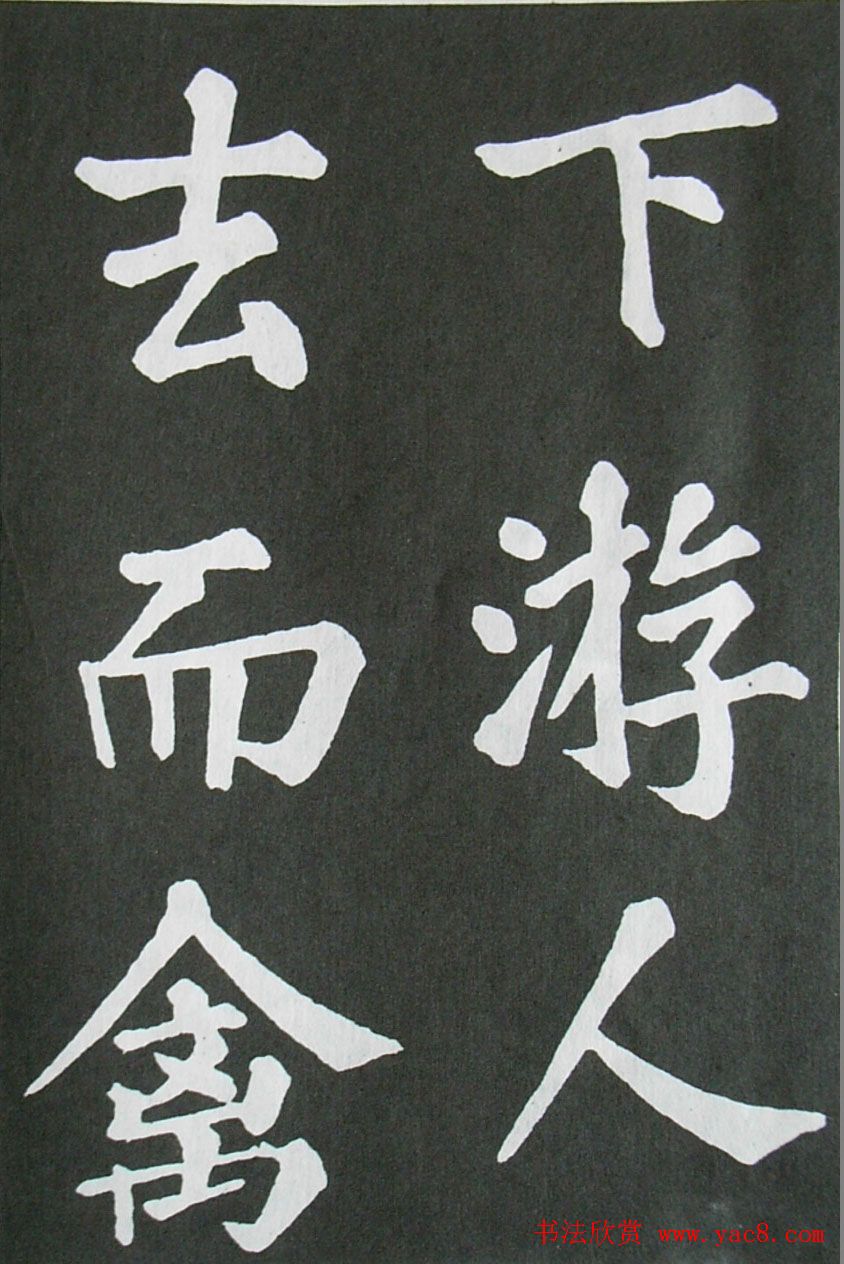 下游人
去而禽
书法欣赏 www.yac8.com